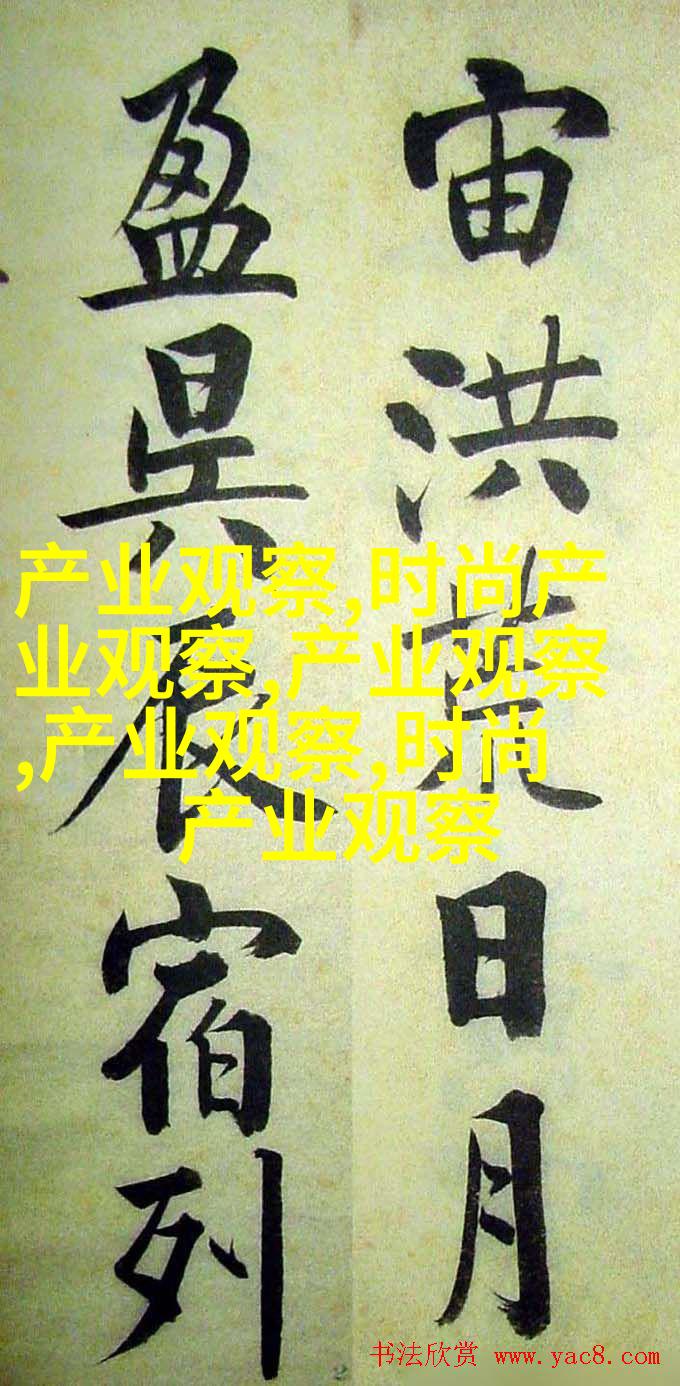 宙洪荒日月
盈昃辰宿列
产业观察,时尚产
业观察,产业观察
,产业观察,时尚
产业观察
书法欣赏 www.yac8.com